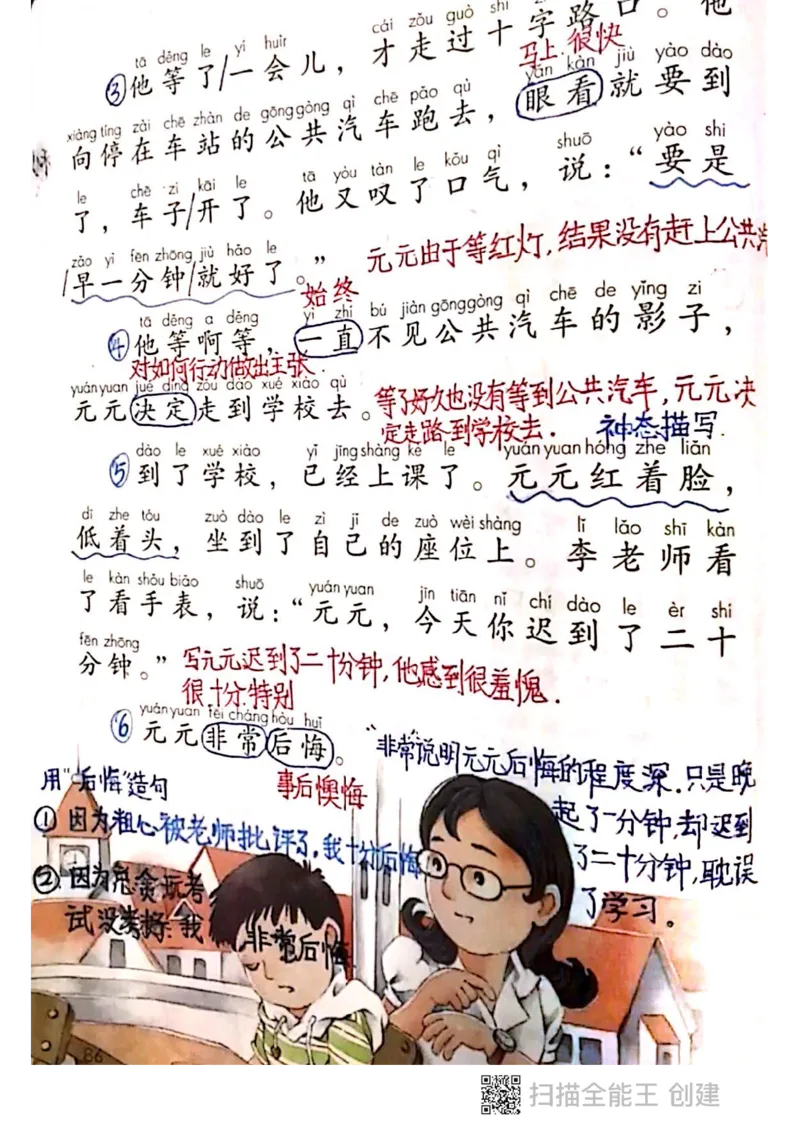 cái zǒu guò shí zì lù kǒu 。 tā
才走过十字路口。他
tā děng le yí huìr
③他等了/一会儿，
马上.很快
yǎn kàn jiù yào dào
眼看就要到
xiàng tíng zài chē zhàn de gōnggòng qì chē pǎo qù
向停在车站的公共汽车跑去，
le chē zi kāi le tā yòu tàn le kǒu qì shuō yào shi
了，车子/开了。他又叹了口气，说：“要是
zǎo yì fēn zhōng jiù hǎo le
/早一分钟/就好了。”
元元由于等红灯，结果没有赶上公共汽
始终
tā děng a děng yì zhí bú jiàn gōnggòng qì chē de yǐng zi
④他等啊等，一直不见公共汽车的影子，
对如何行动做出主张.
yuányuan jué dìng zǒu dào xué xiào qù
元元决定走到学校去。
等了好久也没有等到公共汽车，元元决
定走路到学校去.
神态描写.
dào le xué xiào yǐ jīng shàng kè le yuányuan hóng zhe liǎn
⑤到了学校，已经上课了。元元红着脸，
dī zhe tóu zuò dào le zì jǐ de zuò wèi shàng lǐ lǎo shī kàn
低着头，坐到了自己的座位上。李老师看
le kàn shǒu biǎo shuō yuányuan jīn tiān nǐ chí dào le èr shí
了看手表，说：“元元，今天你迟到了二十
fēn zhōng
分钟。”
写元元迟到了二十分钟，他感到很羞愧.
很.十分.特别
yuányuan fēi cháng hòu huǐ
⑥元元非常后悔。
事后懊悔
“非常说明元元后悔的程度深.只是晚
起了一分钟，却迟到
了二十分钟，耽误
了学习。
用“后悔”造句
①因为粗心被老师批评了，我十分后悔
②.因为
贪玩考
试没考好.我
非常后悔
86
扫描全能王 创建